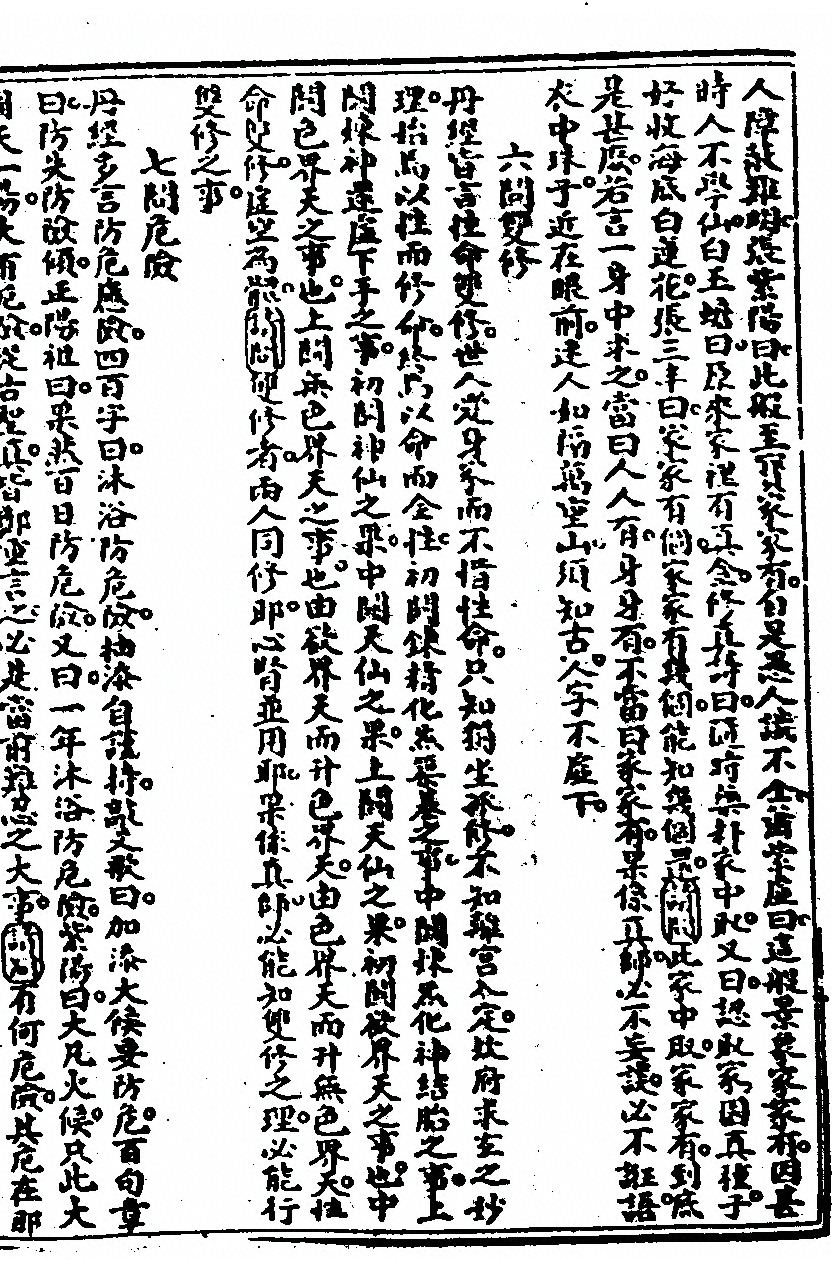 人障故難明張紫陽曰此般至寶家家有自是愚人識不全蕭紫虛曰這般景象家家有因甚
時人不學仙白玉蟾曰臣來家裡有真金修真詩曰何時無料家中取又曰認取家園真種子
好收海底白蓮花張三丰曰家家有個家家有幾個能知幾個還請問此家中取家家有到底
是甚麼若言一身中求之當曰人人有身身有不當曰家家有果係真師必不妄談必不誑語
衣中珠子近在眼前迷人如隔萬重山須知古人字不虛下
六問雙修
丹經皆言性命雙修世人從身分而不惜性命只知獨坐孤修不知離宮入定坎府求玄之妙
理始焉以性而修命終焉以命而全性初關鍊精化炁築基之事中關採炁化神結胎之事上
關煉神還虛下手之事初關神仙之果中關天仙之果上關天仙之果初關欲界天之事也中
關色界天之事也上關無色界天之事也由欲界天而升色界天由色界天而升無色界天性
命雙修虛空為體請問雙修者兩人同修耶心腎並用耶果係真師必能知雙修之理必能行
雙修之事
七問危險
丹經多言防危慮險四百字曰沐浴防危險抽添自謹持敲爻歌曰加添火候要防危百句章
曰防失防險傾正陽祖曰果然百日防危險又曰一年沐浴防危險紫陽曰大凡火候只此大
關天一場大有危險從古聖真皆鄭重言之必是當前難忽之大事請問有何危險其危在那